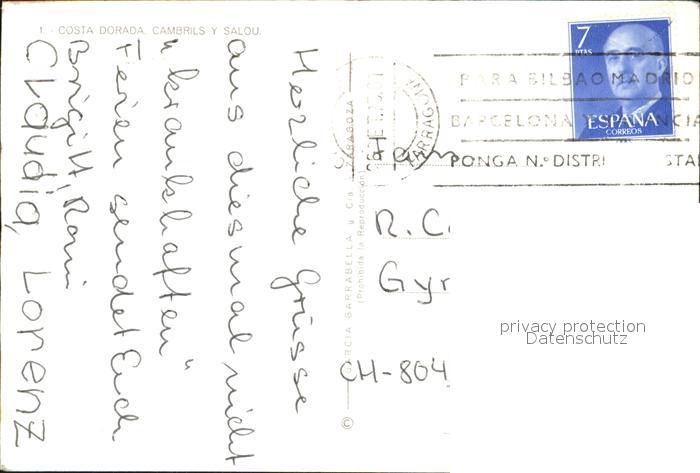 1. - COSTA DORADA. CAMBRILS Y SALOU.
Herzliche Grüsse
aus diesmal nicht
"krankhaften"
Ferien sendet Euch
Brigitt, Romi
Claudia, Lorenz
© GARCIA GARRABELLA y Cia. - ZARAGOZA
(Prohibida la Reproducción)
TARRAGONA
7
PTAS
ESPAÑA
CORREOS
PARA BILBAO MADRID
BARCELONA Y NCIA
PONGA N.º DISTRI STA
Fam
R. C
Gyr
CH-804
privacy protection
Datenschutz